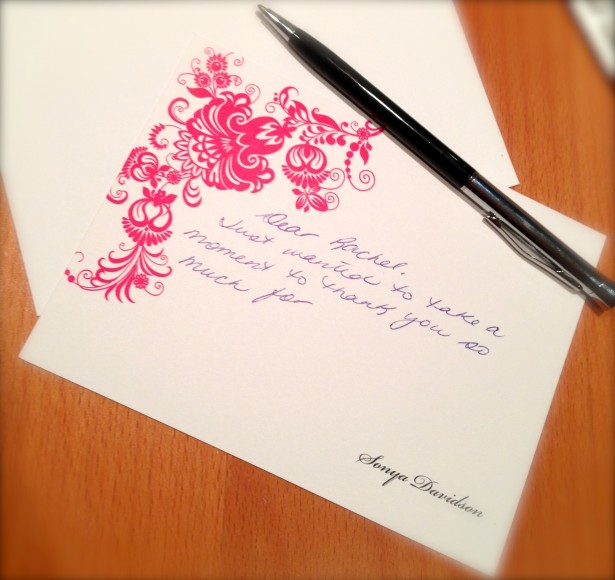 Dear Rachel.
Just wanted to take a
moment to thank you so
much for
Sonya Davidson